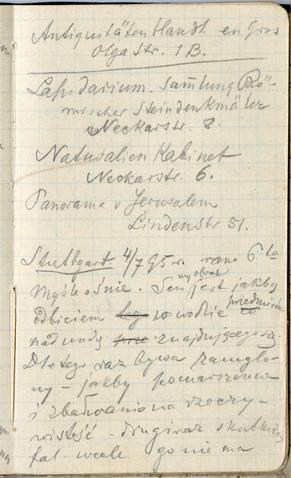 Antiquitäten Handl en gros
Olga Str. 1B.
Lapidarium. Samtlung Rö-
mischer Steindenkmäler
Neckarstr. 2.
Naturalien Kabinet
Neckarstr. 6.
Panorama v Jerusalem
Lindenstr 51.
Stuttgart 4/7 95 r. rano 6ta
Myślę o śnie. Sen jest jakby
wyobraź
odbiciem w wodzie przedmiotu
nad wodą znajdującego się.
Dlatego raz bywa zamglo-
ny – jakby pomarszczona
i zbałwaniona rzeczy-
wistość – drugi raz skutkiem
fal wcale go nie ma